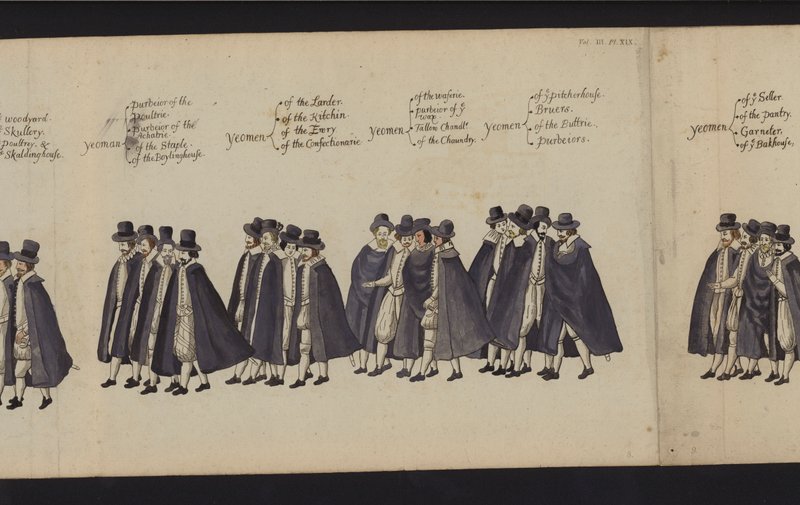 Vol. III. Pl. XIX.
woodyard.
Skullery.
Poultrey. &
Skaldinghouse.
yeoman
purveior of the
Poultrie.
Purveior of the
Achatrie.
of the Staple.
of the Boylinghouse.
yeomen
of the Larder.
of the Kitchin
of the Ewry
of the Confectionarie
yeomen
of the Waferie.
purveior of yͤ
wax.
Tallow Chandlʳ.
of the Chaundry.
yeomen
of yͤ pitcherhouse.
Bruers.
of the Buttrie.
Purveiors.
yeomen
of yͤ Seller.
of the Pantry.
Garneter.
of yͤ Bakhouse,
8.
9